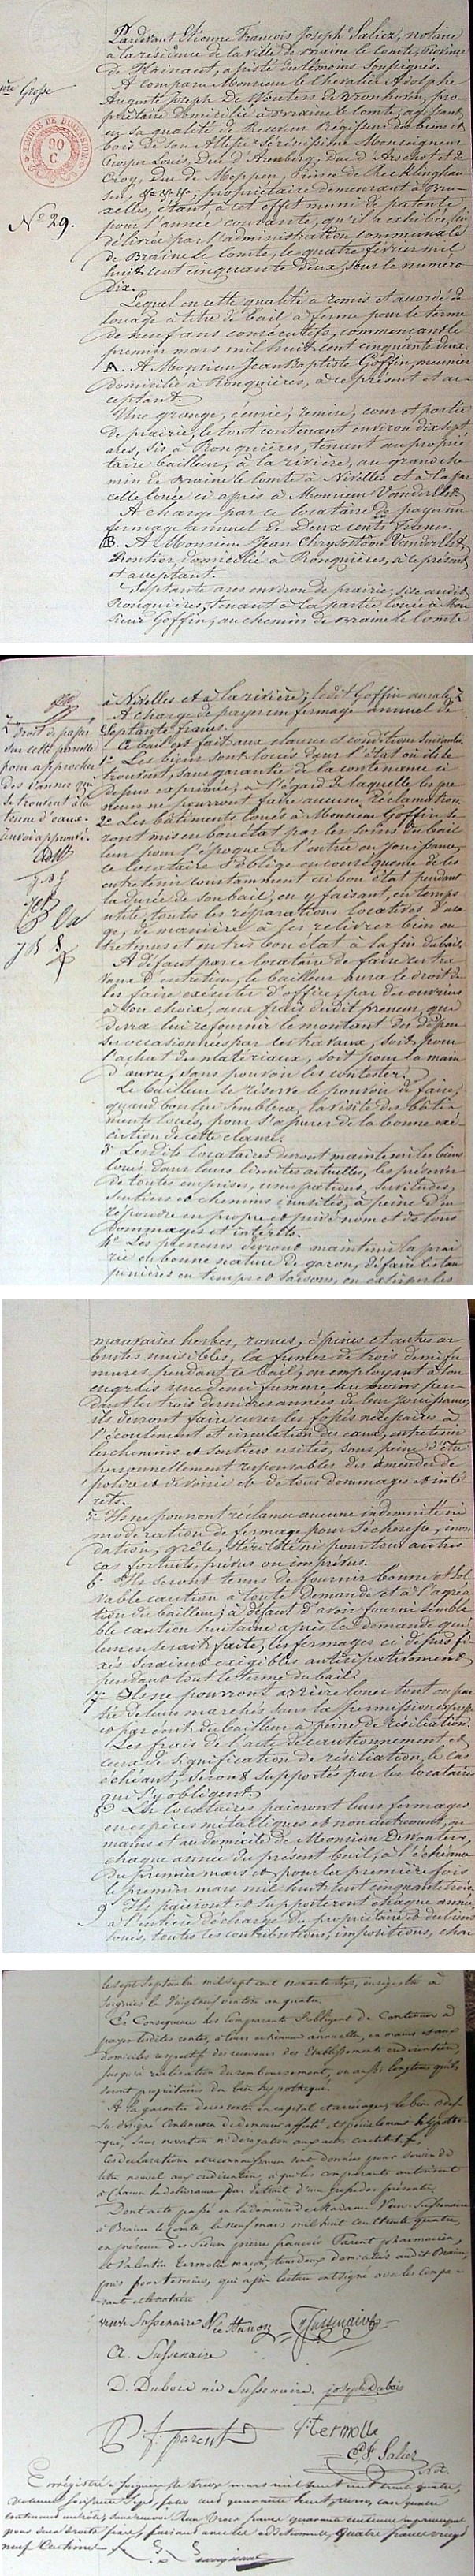 Pardevant Etienne François Joseph Saliez, notaire
à la résidence de la Ville de Braine le Comte, province
de Hainaut, assisté des témoins soussignés.
A Comparu Monsieur le Chevalier Adolphe
Grosse
Auguste Joseph de Wouters de Vronhoven, pro-
priétaire domicilié à Braine le Comte, agissant
en sa qualité de Receveur Régisseur des biens et
bois de Son Altesse Sérénissime Monseigneur
TIMBRE DE DIMENSION
90
C.
Prosper Louis, Duc d'Aremberg, Duc d'Arschot et de
Croÿ, Duc de Meppen, Prince de Recklinghau-
sen, &a &a &a, propriétaire demeurant à Bru-
xelles, étant, à cet effet muni de patente
No 29.
pour l'année courante, qu'il a exhibée, lui
délivrée par l'administration communale
de Braine le Comte, le quatre février mil
huit cent cinquante deux, sous le numéro
dix.
Lequel en cette qualité a remis et accordé à
louage à titre de bail à ferme pour le terme
de neuf ans consécutifs, commençant le
premier mars mil huit cent cinquante deux.
A. A Monsieur Jean Baptiste Goffin, meunier
domicilié à Ronquières, à ce présent et ac-
ceptant.
Une grange, écurie, remise, cour et partie
de prairie, le tout contenant environ dix sept
ares, sis à Ronquières, tenant au proprié-
taire bailleur, à la rivière, au grand che-
min de Braine le Comte à Nivelles et à la par-
celle louée ci après à Monsieur Vander Elst.
A charge par ce locataire de payer un
fermage annuel de Deux cents francs.
B. A Monsieur Jean Chrysostôme Vander Elst,
Rentier, domicilié à Ronquières, à ce présent
et acceptant.
Septante ares environ de prairie, sise audit
Ronquières, tenant à la partie louée à Mon-
sieur Goffin, au chemin de Braine le Comte
à Nivelles et à la rivière; ledit Goffin aura le
A charge de payer un fermage annuel de
droit de passer
Septante francs.
sur cette parcelle
Ce bail est fait aux clauses et conditions suivantes.
pour approcher
1° Les biens sont loués dans l'état où ils se
des vannes qui
trouvent, sans garantie de la contenance ci
se trouvent à la
dessus exprimée, à l'égard de laquelle les pre-
tenue d'eaux.
neurs ne pourront faire aucune réclamation.
Renvoi approuvé.
2° Les bâtiments loués à Monsieur Goffin se-
ront mis en bon état par les soins du bail-
leur pour l'époque de l'entrée en jouissance,
ce locataire s'oblige en conséquence de les
entretenir constamment en bon état pendant
la durée de son bail, en y faisant, en temps
utile, toutes les réparations locatives d'usa-
ge, de manière à les relivrer bien en-
tretenus et en très bon état à la fin du bail.
A défaut par ce locataire de faire ces tra-
vaux d'entretien, le bailleur aura le droit de
les faire exécuter d'office, par des ouvriers
à son choix, aux frais dudit preneur, qui
devra lui refournir le montant des dépen-
ses occasionnées par les travaux, soit pour
l'achat des matériaux, soit pour la main
d'œuvre, sans pouvoir les contester.
Le bailleur se réserve le pouvoir de faire,
quand bon lui semblera, la visite des bâti-
ments loués, pour s'assurer de la bonne exé-
cution de cette clause.
3° Lesdits locataires devront maintenir les biens
loués dans leurs limites actuelles, les préserver
de toutes emprises, usurpations, servitudes,
sentiers et chemins inusités, à peine d'en
répondre en propre et privé nom et de tous
dommages et intérêts.
4° Les preneurs devront maintenir la prai-
rie en bonne nature de gazon, défaire les tau-
pinières en temps et saisons, en extirper les
mauvaises herbes, ronces, épines et autres ar-
bustes nuisibles, la fumer de trois demi fu-
mures pendant ce bail, en employant à son
engrais une demi fumure au moins pen-
dant les trois dernières années de leur jouissance,
ils devront faire curer les fossés nécessaires à
l'écoulement et circulation des eaux, entretenir
les chemins et sentiers usités, sous peine d'être
personnellement responsables des amendes de
police et de voirie et de tous dommages et inté-
rêts.
5° Ils ne pourront réclamer aucune indemnité ni
modération de fermage pour sécheresse, inon-
dation, grêle, stérilité ni pour tous autres
cas fortuits, prévus ou imprévus.
6° Ils seront tenus de fournir bonne et sol-
vable caution à toute demande et à l'agréa-
tion du bailleur; à défaut d'avoir fourni sembla-
ble caution huitaine après la demande qui
leur en serait faite, les fermages ci dessus fi-
xés seraient exigibles anticipativement
pendant tout le terme du bail.
7° Ils ne pourront arrière louer tout ou par-
tie de leurs marchés sans la permission expresse
et par écrit du bailleur à peine de résiliation.
Les frais de l'acte de cautionnement et
ceux de signification de résiliation, le cas
échéant, seront supportés par les locataires
qui s'y obligent.
8° Les locataires paieront leurs fermages
en espèces métalliques et non autrement, ès
mains et au domicile de Monsieur De Wouters,
chaque année du présent bail, à l'échéance
du premier mars et pour la première fois
le premier mars mil huit cent cinquante trois.
9° Ils paieront et supporteront chaque année
à l'entière décharge du propriétaire et des biens
loués, toutes les contributions, impositions, char-
le sept Septembre mil sept cent nonante six, enregistré à
Soignies le vingt
En Conséquence les Comparants s'obligent de Continuer à
payer lesdites rentes, à leurs échéances annuelles, en mains et aux
domiciles respectifs des receveurs des Etablissements
jusqu'à réalisation du remboursement, ou aussi longtems qu'ils
seront propriétaires du bien hypothéqué.
A la garantie desdites rentes en capital et arrérages, le bien
Sus désigné continuera de demeurer affecté et spécialement hypothé-
qué, sans novation ni dérogation aux actes constitutifs.
Ces déclarations et reconnaissances sont données pour servir de
titre nouvel aux à qui les comparants autorisent
à
Dont acte, passé en la demeure de Madame Veuve Sussenaire
à Braine le Comte, le neuf mars mil huit cent trente quatre,
en présence des Sieurs pierre françois Parent pharmacien,
et Valentin Termolle maçon, tous deux domiciliés audit Braine,
pris pour témoins, qui après lecture ont signé avec les Compa-
rants et le notaire.
veuve Sussenaire Née Hanon Sussenaire
A. Sussenaire
D. Dubois née Sussenaire. joseph Dubois
P. f. parent V. termolle
E F Saliez
Not.
Enregistré à Soignies le treize mars mil huit cent trente quatre,